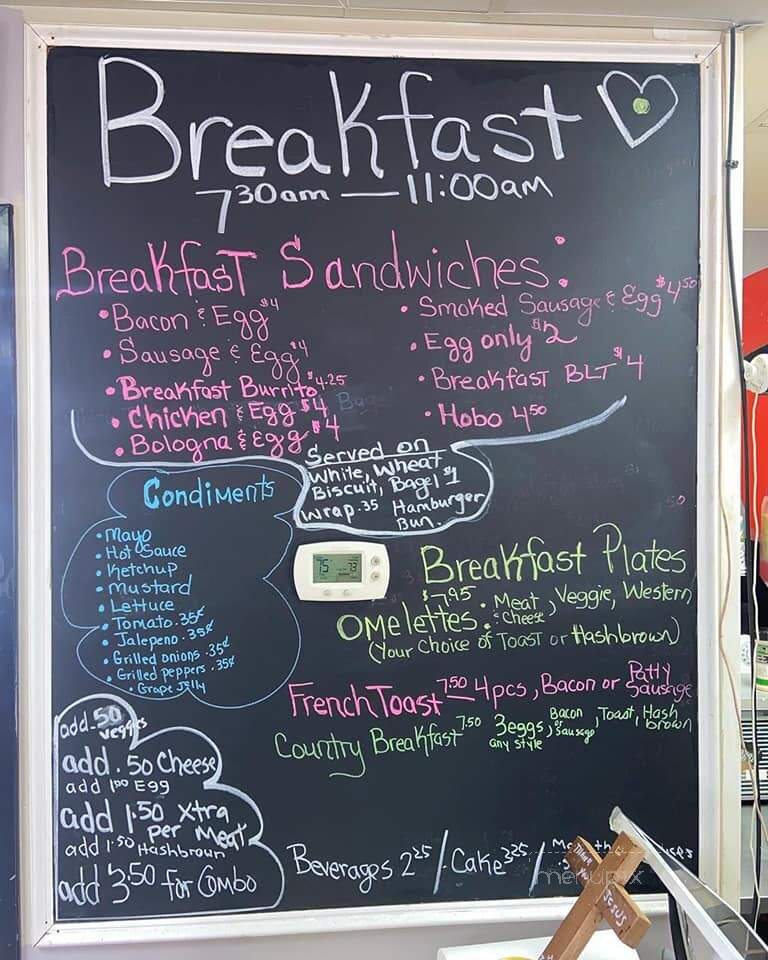 Breakfast
7 30am — 11:00am
Breakfast Sandwiches:
• Bacon & Egg $4
• Sausage & Egg $4
• Breakfast Burrito $4.25
• Chicken & Egg $4
• Bologna & Egg $4
• Smoked Sausage & Egg $4 50
• Egg only $2
• Breakfast BLT $4
• Hobo 4 50
Served on
White, Wheat
Biscuit, Bagel $1
Wrap .35 Hamburger
Bun.
Condiments
• Mayo
• Hot Sauce
• Ketchup
• Mustard
• Lettuce
• Tomato .35¢
• Jalepeno .35¢
• Grilled onions .35¢
• Grilled peppers .35¢
• Grape Jelly
75 73
Breakfast Plates
Omelettes: $7.95 • Meat & Cheese, Veggie, Western
(Your Choice of Toast or Hashbrown)
French Toast 7.50 — 4pcs, Bacon or Patty Sausage
Country Breakfast 7.50 3eggs any style, Bacon or Sausage, Toast, Hash brown
add .50 veggies
add .50 Cheese
add 1 00 Egg
add 1.50 Xtra
per Meat
add 1.50 Hashbrown
add 3.50 for Combo
Beverages 2 25 / Cake 3.25 /
menupix
Thank You
JESUS